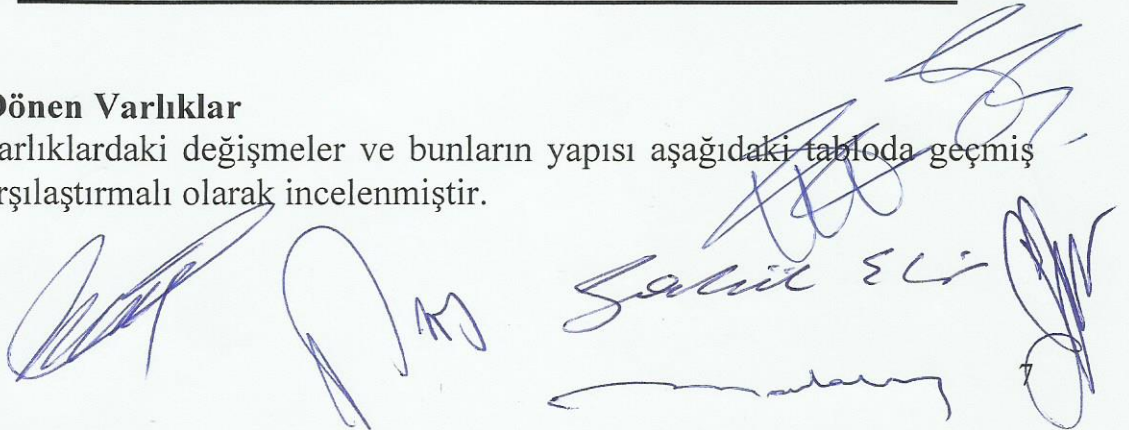 Dönen Varlıklar
arlıklardaki değişmeler ve bunların yapısı aşağıdaki tabloda geçmiş
rşılaştırmalı olarak incelenmiştir.
7